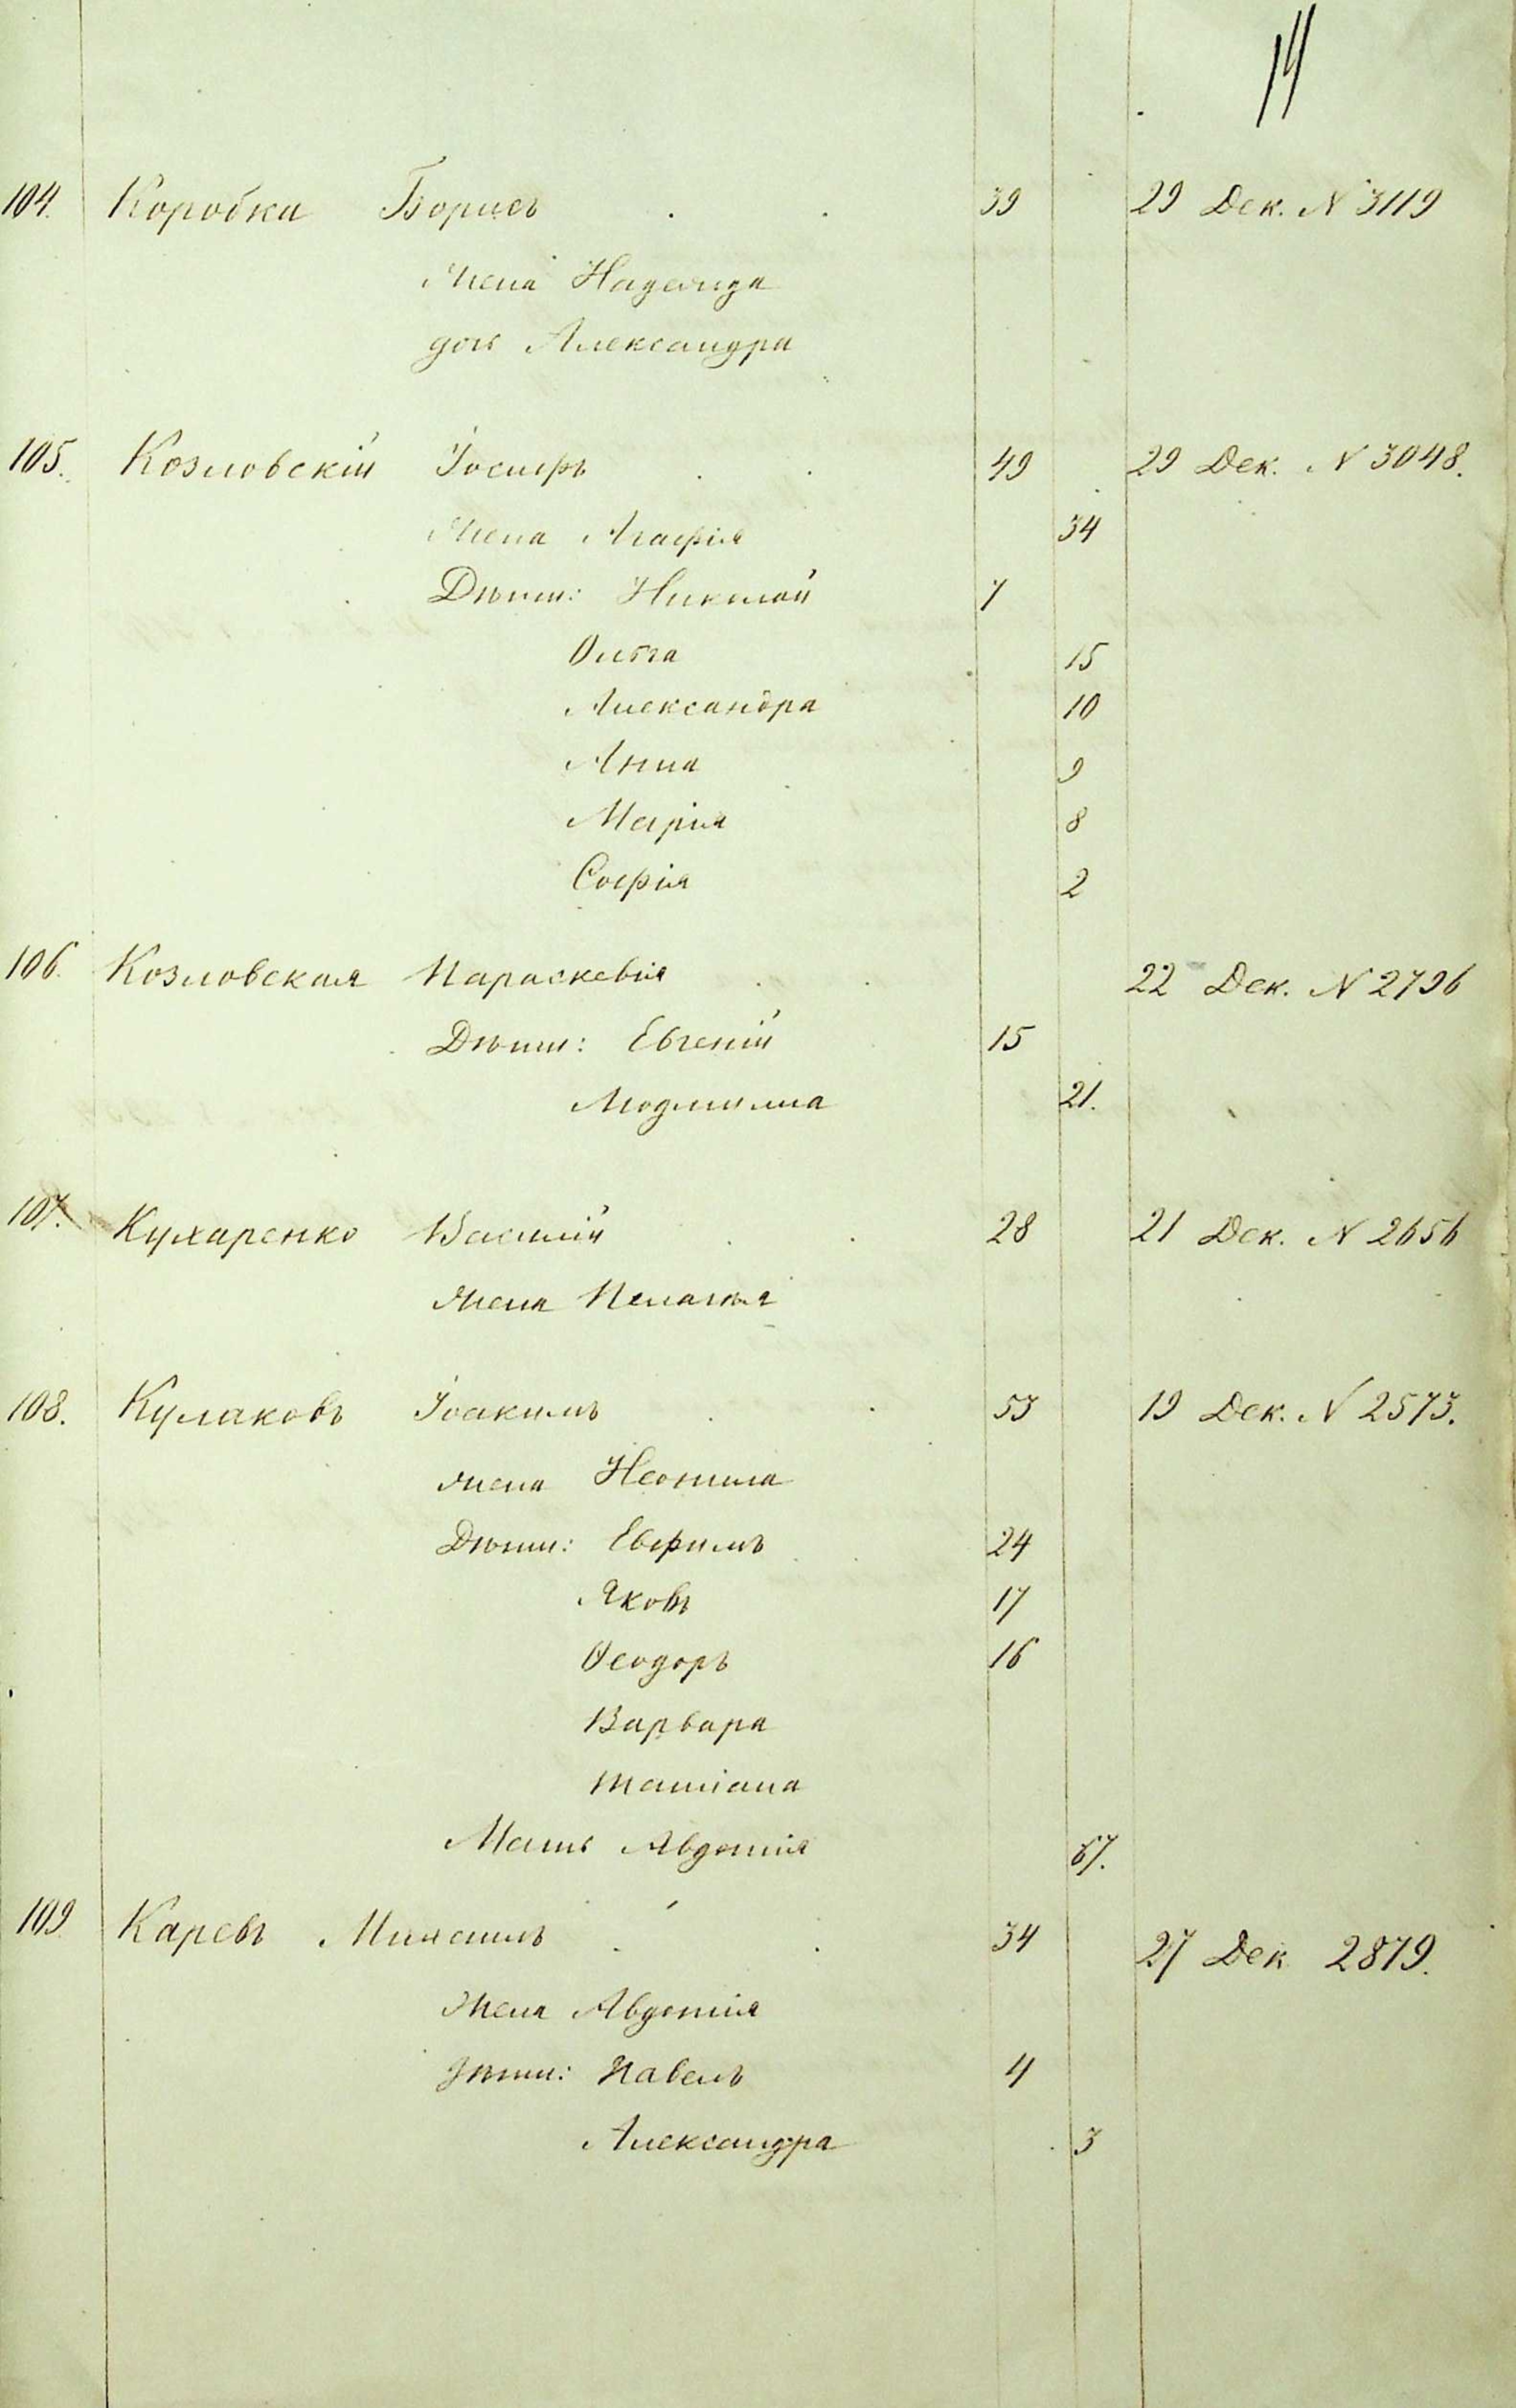 14
104. Коробка Борисъ 39 29 Дек. N 3119
жена Надежда
дочь Александра
105. Козловскій Іосифъ 49 29 Дек. N 3048.
жена Агафія 34
Дѣти: Николай 7
Ольга 15
Александра 10
Анна 9
Марія 8
Софія 2
106. Козловская Параскевія 22 Дек. N 2796
Дѣти: Евгеній 15
Людмилла 21.
107. Кухаренко Василій 28 21 Дек. N 2656
жена Пелагѣя
108. Кулаковъ Іоакимъ 53 19 Дек. N 2573.
жена Неонила
Дѣти: Евфимъ 24
Яковъ 17
Ѳеодоръ 16
Варвара
Татіана
Мать Авдотія 67.
109 Каревъ 34 27 Дек 2879.
Жена Авдотія
дѣти: Павелъ 4
Александра 3